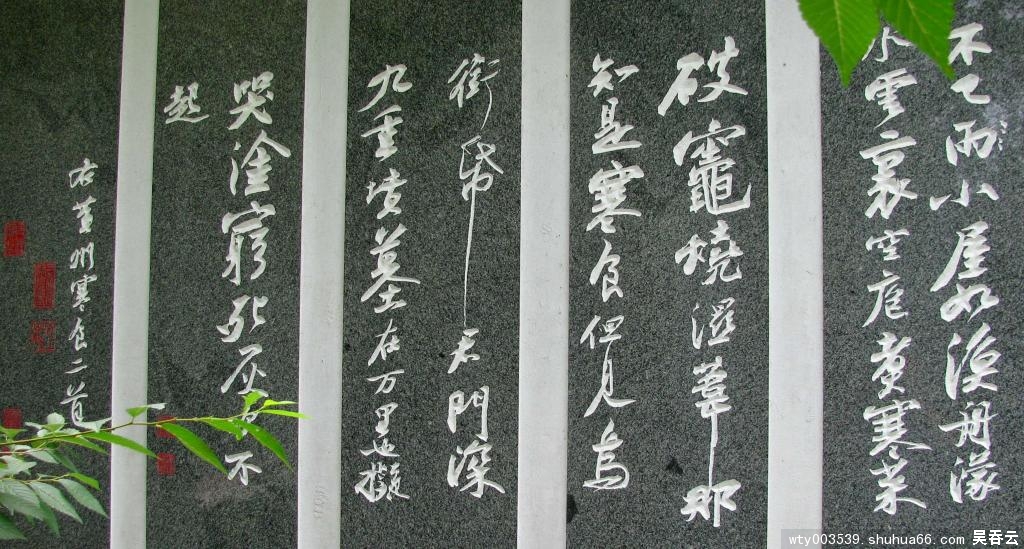 不已雨小屋如漁舟濛
水雲裏空庖煮寒菜
破竈燒濕葦那
知是寒食但見烏
銜帋天門深
九重墳墓在万里也擬
哭塗窮死灰吹不
起
右黃州寒食二首
wty003539.shuhua66.com 吴吞云